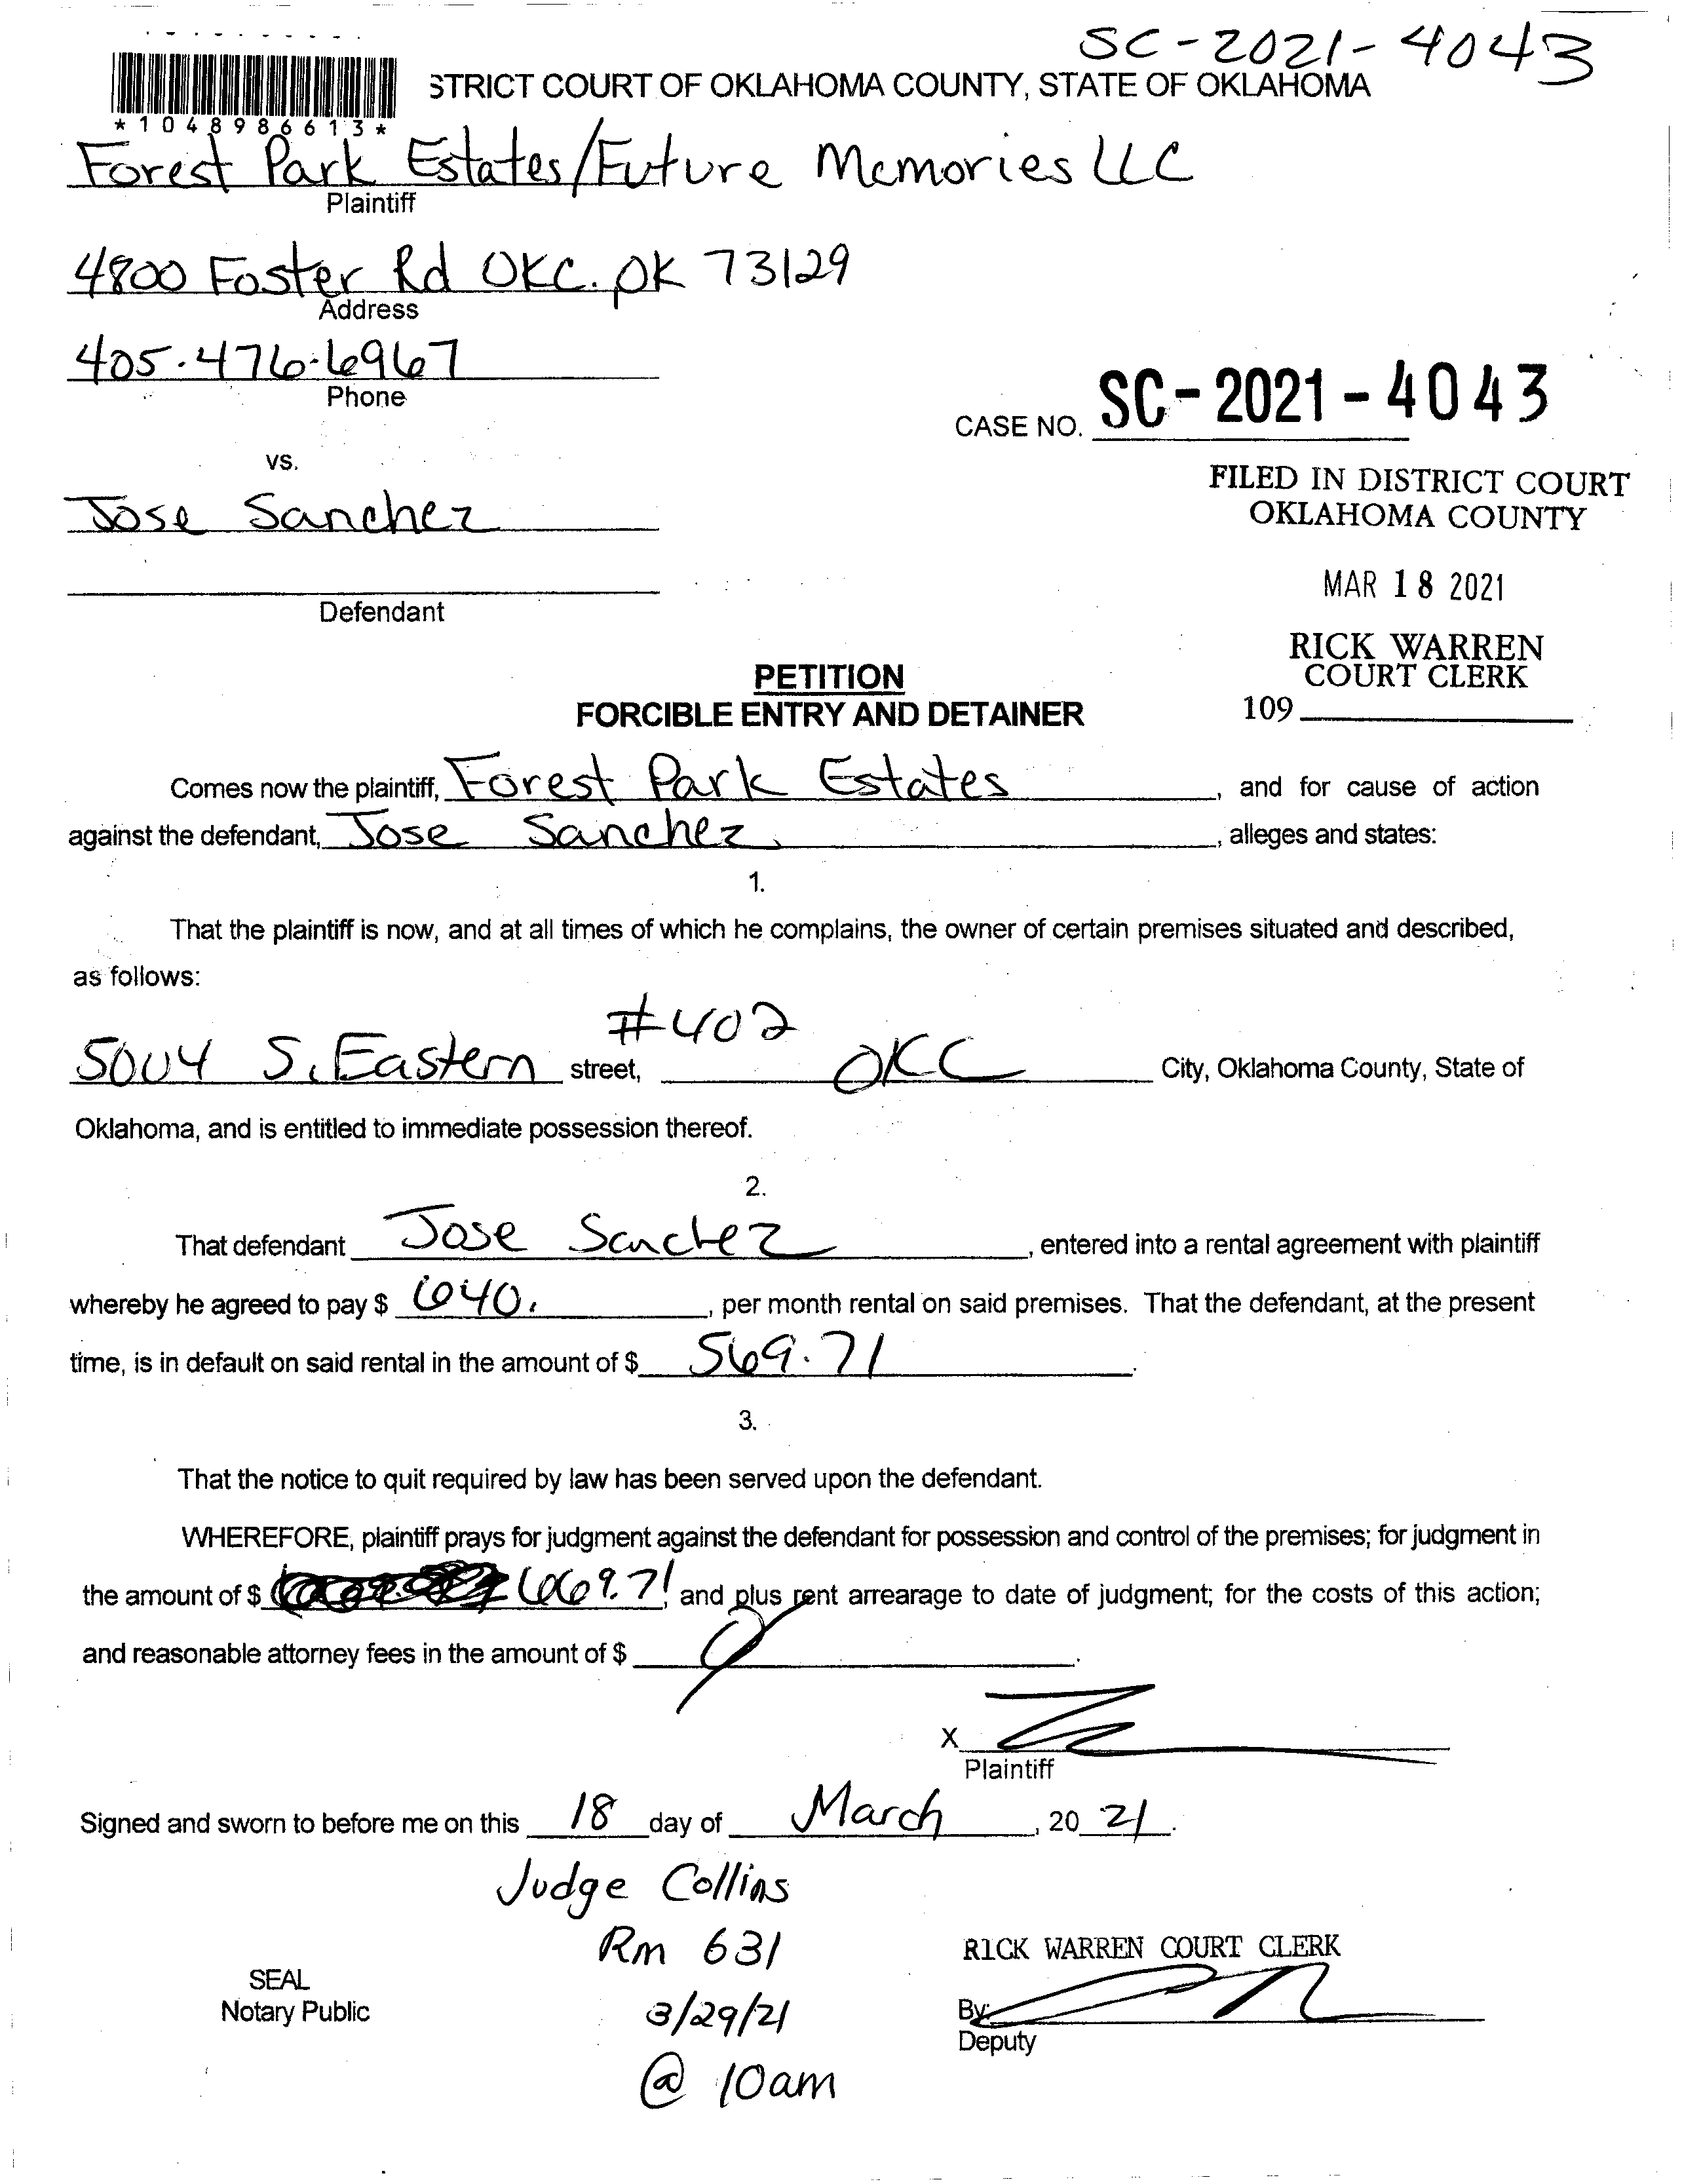 SC-2021-4043
STRICT COURT OF OKLAHOMA COUNTY, STATE OF OKLAHOMA
*1048986613*
Forest Park Estates/Future Memories LLC
Plaintiff
4800 Foster Rd OKC. OK 73129
Address
405.476-6967
Phone
CASE NO. SC-2021-4043
vs.
FILED IN DISTRICT COURT
Jose Sanchez
OKLAHOMA COUNTY
MAR 18 2021
Defendant
RICK WARREN
COURT CLERK
PETITION
FORCIBLE ENTRY AND DETAINER
109
Comes now the plaintiff, Forest Park Estates, and for cause of action
against the defendant, Jose Sanchez, alleges and states:
1.
That the plaintiff is now, and at all times of which he complains, the owner of certain premises situated and described,
as follows:
#402
5004 S. Eastern street, OKC City, Oklahoma County, State of
Oklahoma, and is entitled to immediate possession thereof.
2.
That defendant Jose Sanchez, entered into a rental agreement with plaintiff
whereby he agreed to pay $ 640., per month rental on said premises. That the defendant, at the present
time, is in default on said rental in the amount of $ 569.71.
3.
That the notice to quit required by law has been served upon the defendant.
WHEREFORE, plaintiff prays for judgment against the defendant for possession and control of the premises; for judgment in
the amount of $ 669.71 and plus rent arrearage to date of judgment; for the costs of this action;
and reasonable attorney fees in the amount of $
X
Plaintiff
Signed and sworn to before me on this 18 day of March, 20 21.
Judge Collins
Rm 631
RICK WARREN COURT CLERK
SEAL
Notary Public
3/29/21
By:
Deputy
@ 10am